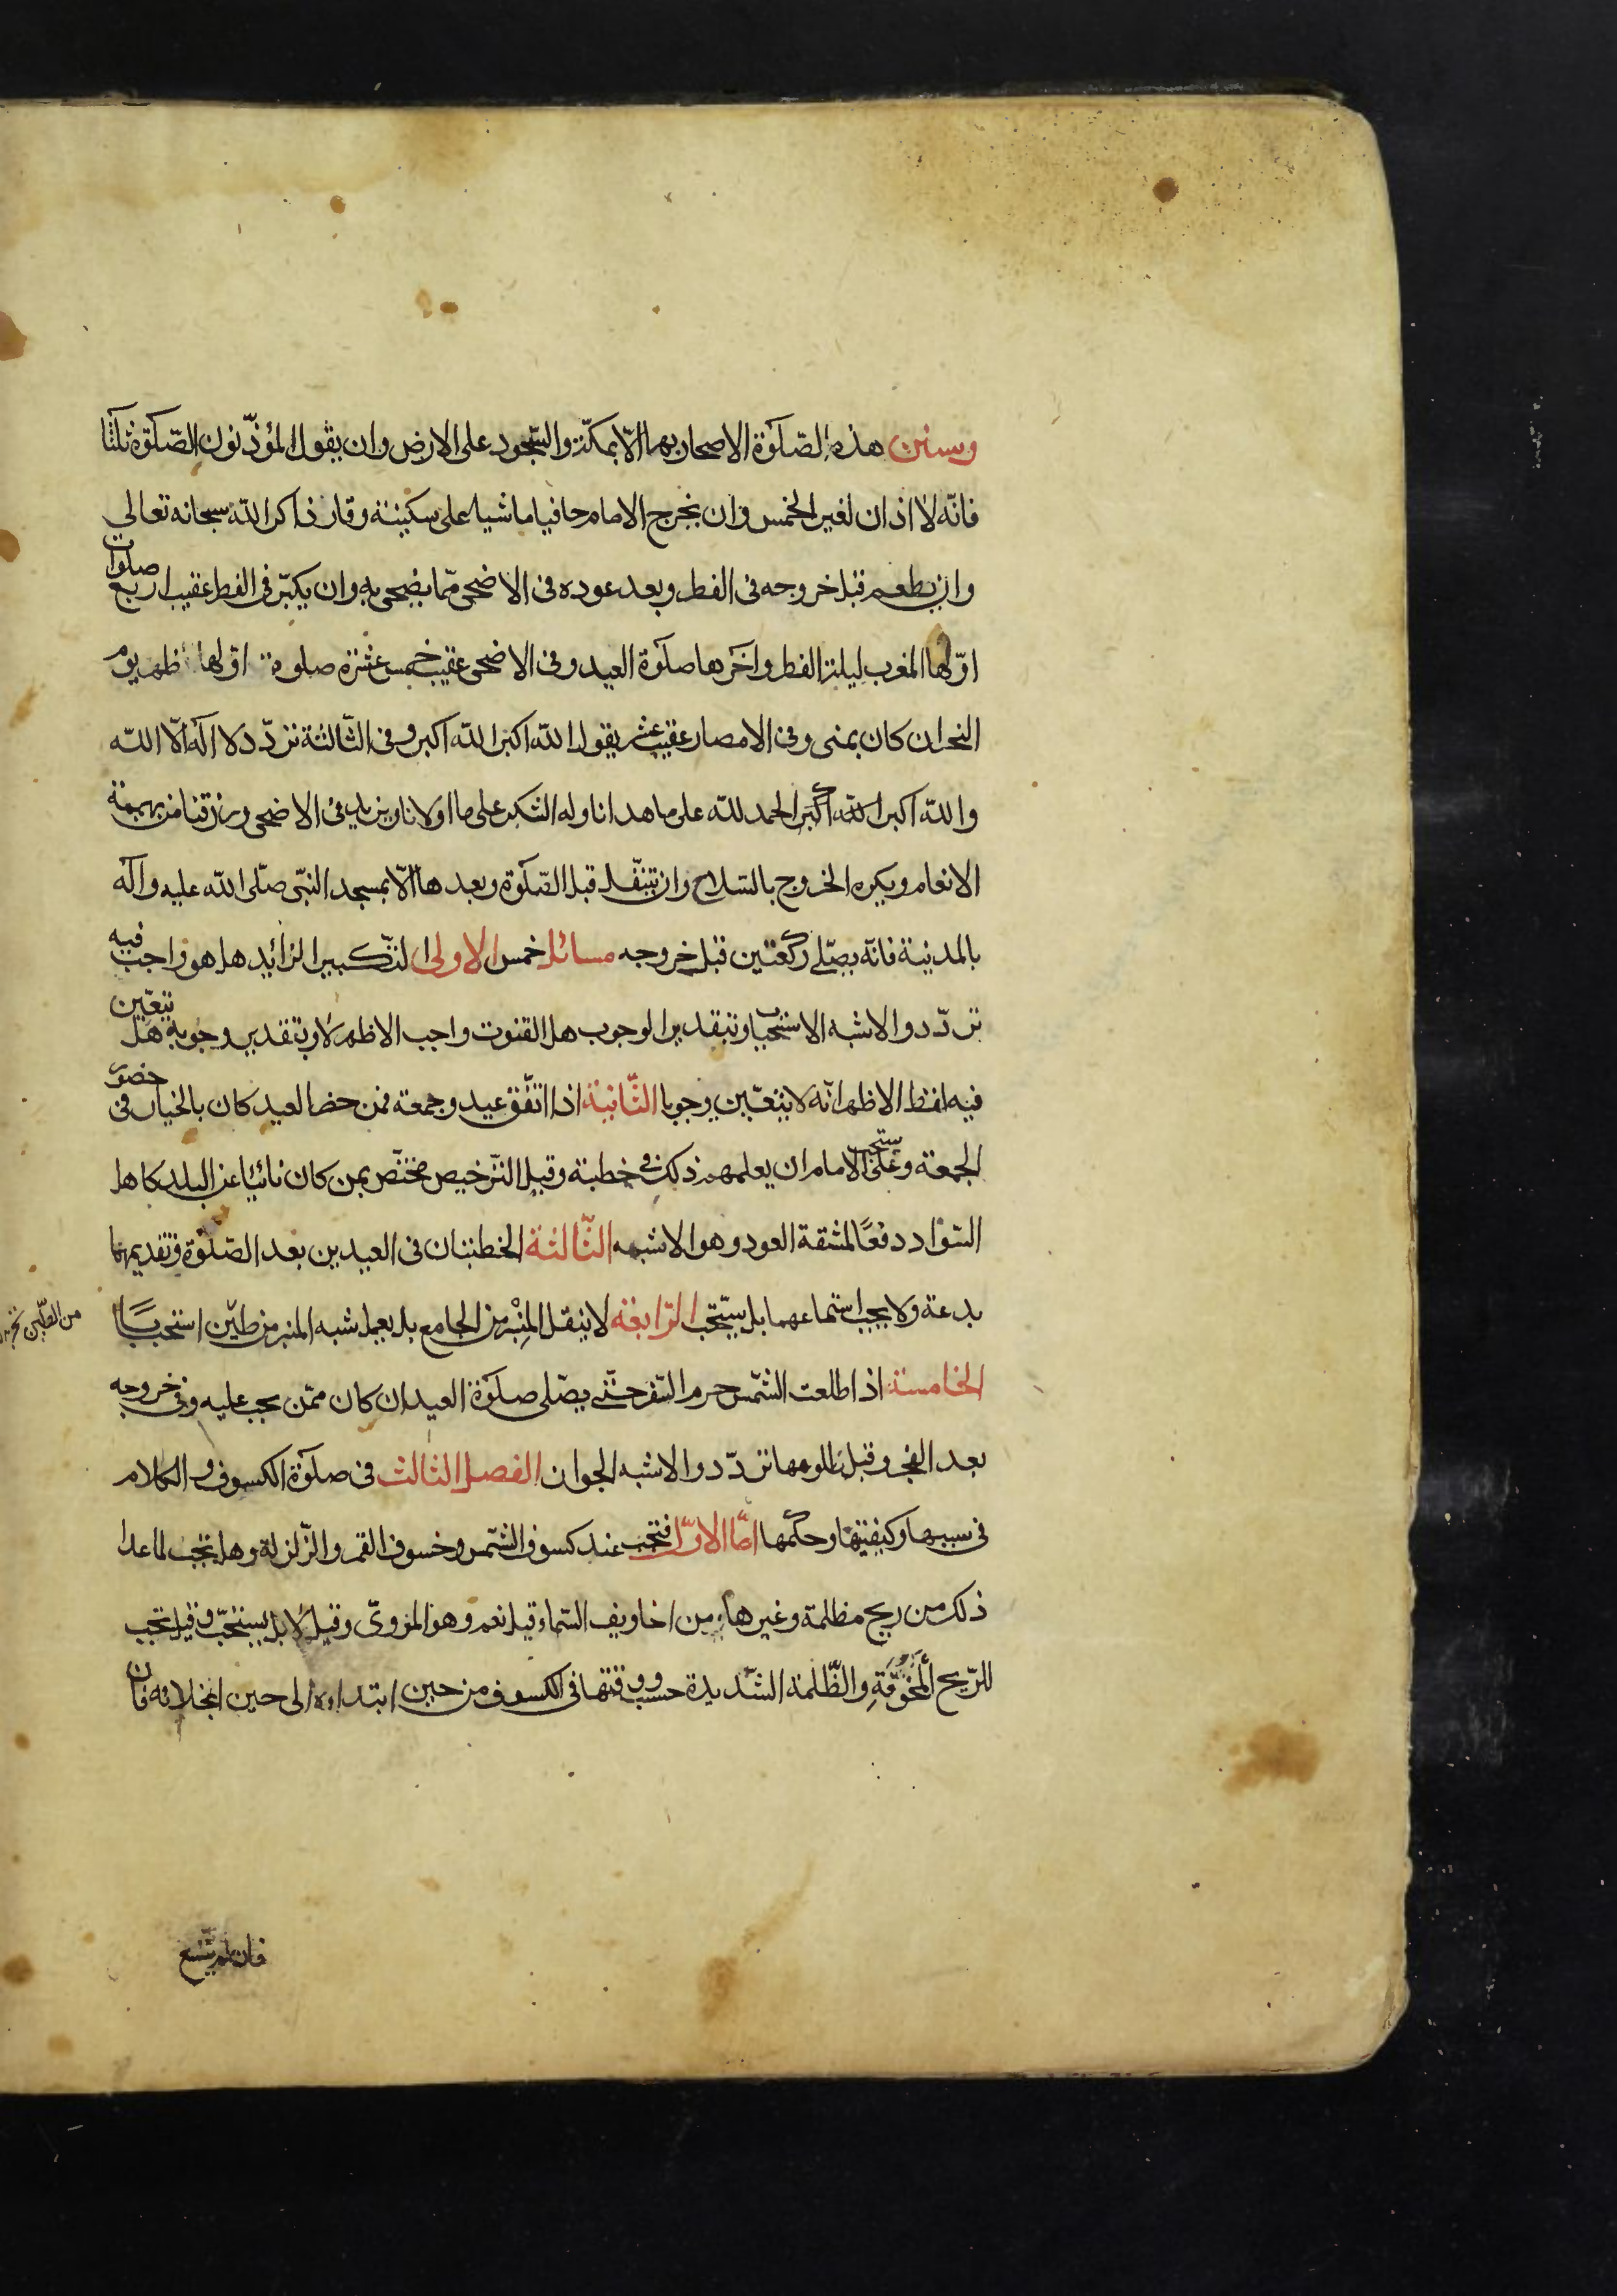 وسنن هذه الصلوة الاصحار بها الّا بمكّة والسّجود على الارض وان يقول المؤذّنون الصّلوة ثلثا
فانّه لا اذان لغير الخمس وان يخرج الامام حافيا ماشيا على سكينة وقار ذاكرا لله سبحانه تعالى
وان يطعم قبل خروجه فى الفطر وبعد عوده فى الاضحى ممّا يضحى به وان يكبّر فى الفطر عقيب اربع صلوات
اوّلها المغرب ليلة الفطر وآخرها صلوة العيد وفى الاضحى عقيب خمس عشرة صلوة اوّلها ظهر يوم
النحر ان كان بمنى وفى الامصار عقيب عشر يقول الله اكبر الله اكبر وفى الثّالثة تردّد لا اله الّا الله
والله اكبر الله اكبر الحمد لله على ما هدانا وله الشكر على ما اولانا ويزيد فى الاضحى ورزقنا من بهيمة
الانعام ويكره الخروج بالسّلاح وان يتنفّل قبل الصّلوة وبعدها الّا بمسجد النبّى صلّى الله عليه وآله
بالمدينة فانّه يصلّى ركعتين قبل خروجه مسائل خمس الاولى التّكبير الزائد هل هو واجب فيه
تردّد والاشبه الاستحباب وبتقدير الوجوب هل القنوت واجب الاظهر لا وبتقدير وجوبه هل يتعيّن
فيه لفظ الاظهر انّه لا يتعيّن وجوبا الثّانية اذا اتّفق عيد وجمعة فمن حضر العيد كان بالخيار فى حضور
الجمعة وعلى الامام ان يعلمهم ذلك فى خطبته وقيل التّرخيص مختّص بمن كان نائيا عن البلد كاهل
السّواد دفعًا لمشقة العود وهو الاشبه الثّالثة الخطبتان فى العيدين بعد الصّلوة وتقديمها
بدعة ولا يجب استماعهما بل يستّحب الرّابعة لا ينقل المِنْبر من الجامع بل يعمل شبه المنبر من طّين استحبابًا
الخامسة اذا طلعت الشّمس حرم السّفر حتّى يصّلى صلوة العيد ان كان ممّن يجب عليه وفى خروجه
بعد الفجر وقبل طلوعها تردّد والاشبه الجواز الفصل الثالث فى صلوة الكسوف والكلام
فى سببها وكيفيتها وحكمها امّا الاوّل فتجب عند كسوف الشّمس وخسوف القمر والزّلزلة وهل تجب لما عدا
ذلك من ريح مظلمة وغيرها من اخاويف السّماء قيل نعم وهو المروىّ وقيل لا بل يستحبّ وقيل تجب
للرّيح المخوّفةِ والظّلمة الشّديدة حسب ووقتها فى الكسوف من حين ابتداءه الى حين انجلائه فان
فان لم يتّسع